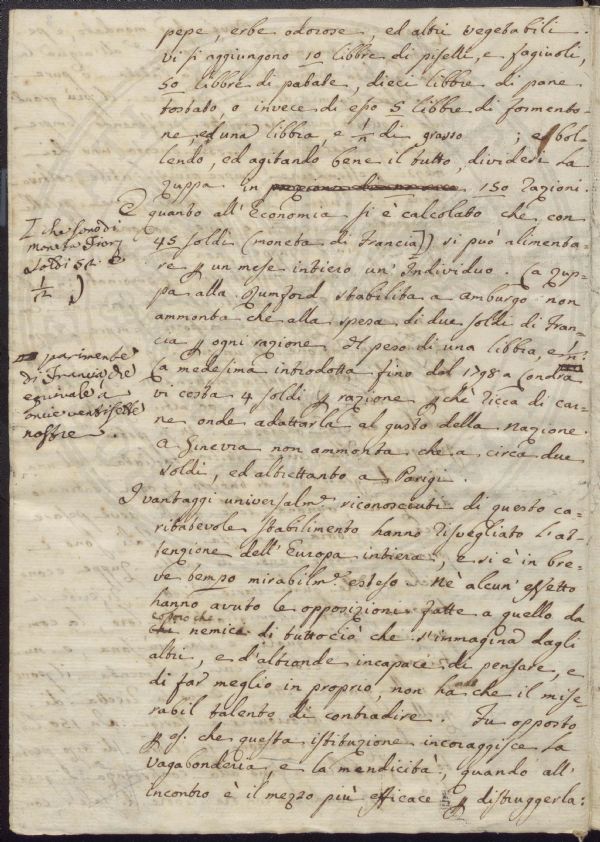 pepe, erbe odorose, ed altri vegetabili.
vi si aggiungono 10 libbre di piselli, e fagiuoli,
50 libbre di patate, dieci libbre di pane
tostato, o invece di esso 5 libbre di formento-
ne, ed una libbra, e 1/2 di grasso ; e bol-
lendo, ed agitando bene il tutto, dividesi la
zuppa in 150 razioni.
E quanto all'Economia si è calcolato che con
45 soldi (moneta di Francia) si può alimenta-
re p un mese intiero un'Individuo. La zup-
pa alla Rumford stabilita a Amburgo non
ammonta che alla spesa di due soldi di Fran-
cia p ogni razione di peso di una libbra, e 1/2.
La medesima introdotta fino dal 1798 a Londra
vi costa 4 soldi p razione p chè ricca di car-
ne onde adattarla al gusto della Nazione.
A Ginevra non ammonta che a circa due
soldi, ed altrettanto a Parigi.
I vantaggi universalm.e riconosciuti di questo ca-
ritatevole stabilimento hanno risvegliato l'at-
tenzione dell'Europa intiera, e si è in bre-
ve tempo mirabilm.e esteso. Nè alcun'effetto
hanno avuto le opposizioni fatte a quello da
coloro che
nemica di tutto ciò che s'immagina dagli
altri, e d'altronde incapace di pensare, e
di far meglio in proprio, non ha che il mise
rabil talento di contradire. Fu opposto
p es. che questa istituzione incoraggisce la
vagabonderia, e la mendicità, quando all'
incontro è il mezzo più efficace p distruggerla:
che sono di
moneta
soldi 52. e
1/2 )
parimente
di Francia, che
equivale a
ventisette
nostre.